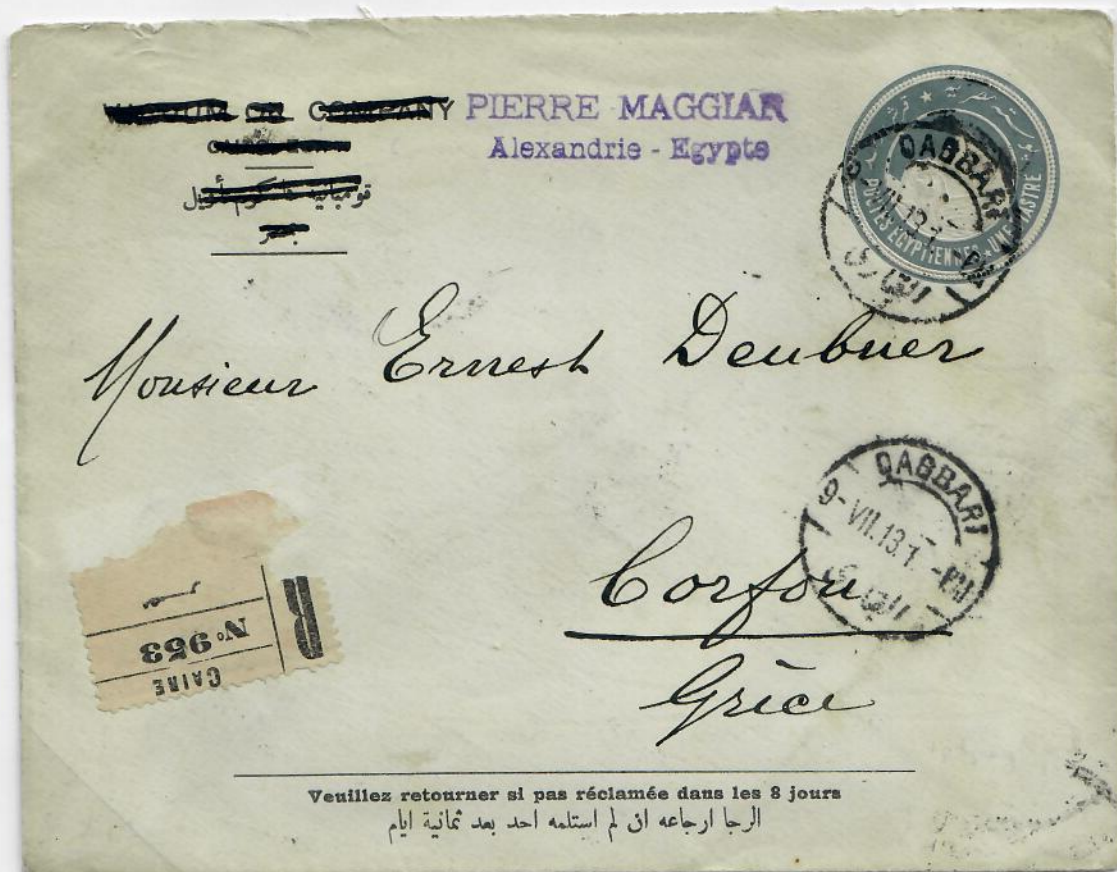 VACUUM OIL COMPANY
PIERRE MAGGIAR
Alexandrie - Egypte
قومبانية فاكوم أويل
POSTES EGYPTIENNES ★ UNE PIASTRE
QABBARI
Monsieur Ernest Deubner
QABBARI
9-VII.13.1
Corfou
Grèce
R
Nº 953
CAIRE
Veuillez retourner si pas réclamée dans les 8 jours
الرجا ارجاعه ان لم استلمه احد بعد ثمانية ايام